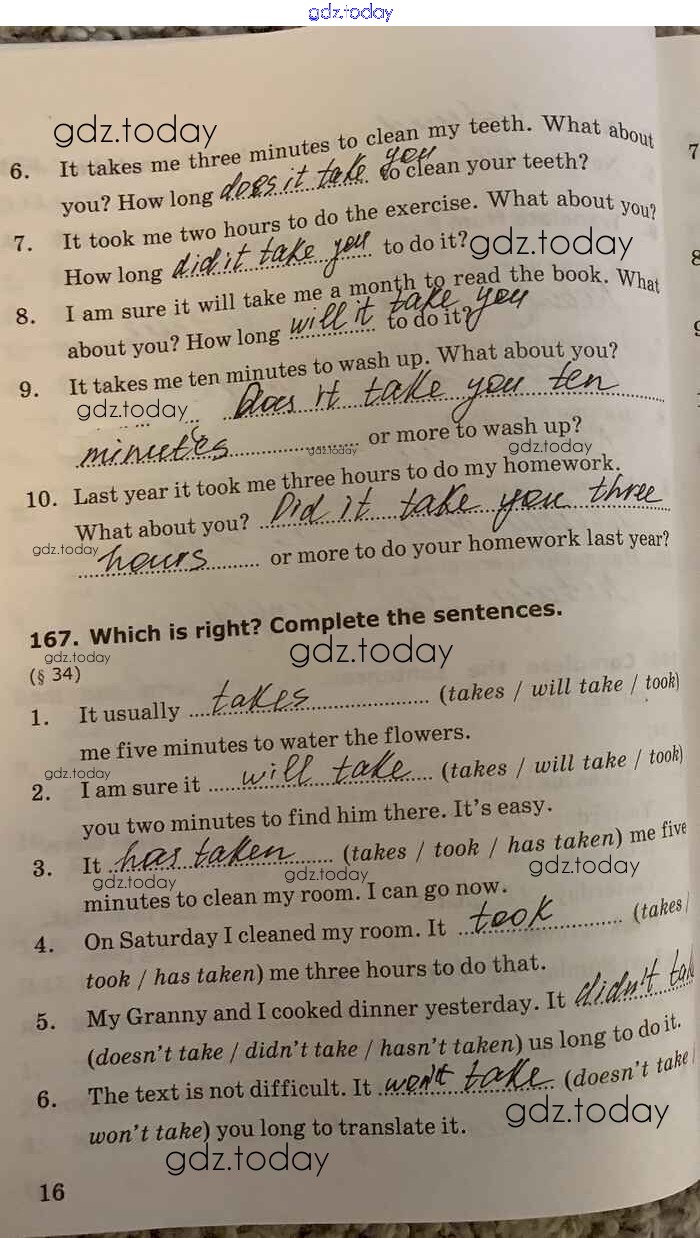 gdz.today
gdz.today
6. It takes me three minutes to clean my teeth. What about
you? How long does it take you to clean your teeth?
7. It took me two hours to do the exercise. What about you?
How long did it take you to do it? gdz.today
8. I am sure it will take me a month to read the book. What
about you? How long will it take you to do it?
9. It takes me ten minutes to wash up. What about you?
gdz.today Does it take you ten
minutes gdz.today or more to wash up? gdz.today
10. Last year it took me three hours to do my homework.
What about you? Did it take you three
gdz.today hours or more to do your homework last year?
167. Which is right? Complete the sentences.
gdz.today gdz.today
(§ 34)
1. It usually takes (takes / will take / took)
me five minutes to water the flowers.
gdz.today
2. I am sure it will take (takes / will take / took)
you two minutes to find him there. It's easy.
3. It has taken (takes / took / has taken) me five
gdz.today gdz.today gdz.today
minutes to clean my room. I can go now.
4. On Saturday I cleaned my room. It took (takes /
took / has taken) me three hours to do that.
5. My Granny and I cooked dinner yesterday. It didn't tak
(doesn't take / didn't take / hasn't taken) us long to do it.
6. The text is not difficult. It won't take (doesn't take /
won't take) you long to translate it.
gdz.today
gdz.today
16
7
8
9